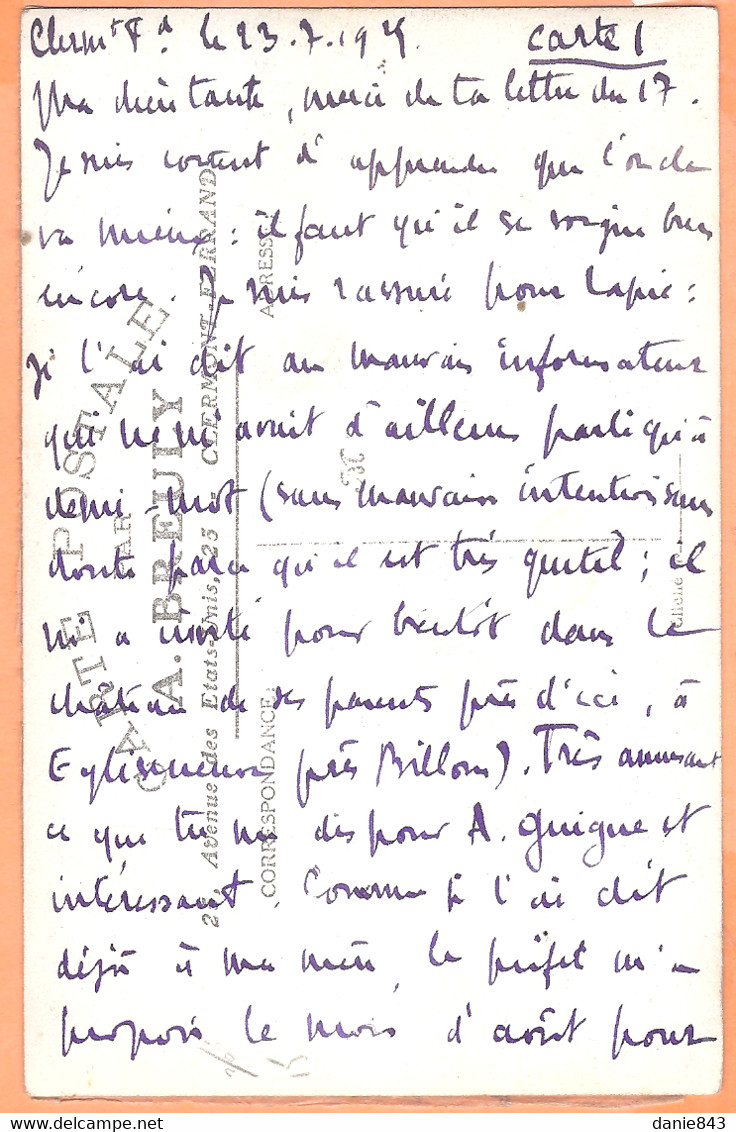 Clermt Fd le 23.7.19 carte 1
Ma chère tante, merci de ta lettre du 17.
Je suis content d'apprendre que l'oncle
va mieux : il faut qu'il se soigne bien
encore. Je suis rassuré pour Lapie :
je l'ai dit au mauvais informateur
qui ne m'avait d'ailleurs parlé qu'à
demi-mot (sans mauvaise intention sans
doute parce qu'il est très gentil ; il
m'a invité pour bientôt dans le
château de ses parents près d'ici, à
Egliseneuve (près Billom). Très amusant
ce que tu me dis pour A. Guigue et
intéressant. Comme je l'ai dit
déjà à ma mère, le préfet m'a
proposé le mois d'août pour
CARTE POSTALE
PAR
A. BREUIY
25, Avenue des Etats-Unis, 25 CLERMONT-FERRAND
CORRESPONDANCE
ADRESSE
Cliché
danie843